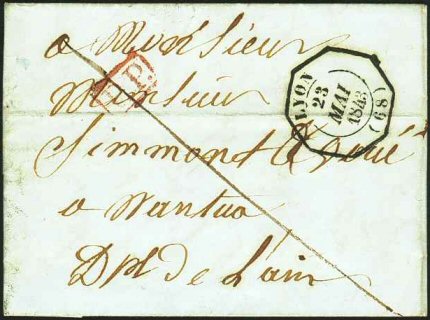 a Monsieur
P.P.
Monsieur
Simmonet Avoué
a Nantua
Dpt de L'ain
LYON
23
MAI
1843
(68)